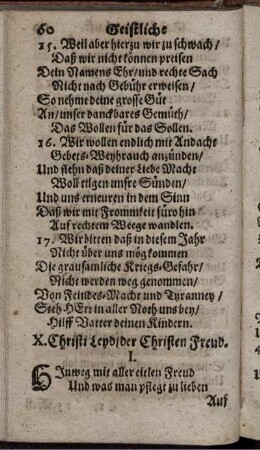 60 Geistliche
15. Weil aber hierzu wir zu schwach/
Daß wir nicht können preisen
Dein Namens Ehr/ und rechte Sach
Nicht nach Gebühr erweisen/
So nehme deine grosse Güt
An/ unser danckbares Gemüth/
Das Wollen für das Sollen.
16. Wir wollen endlich mit Andacht
Gebets-Weyhrauch anzünden/
Und flehn daß deiner Liebe Macht
Woll tilgen unsre Sünden/
Und uns erneuren in dem Sinn
Daß wir mit Frommkeit fürohin
Auf rechtem Weege wandlen.
17. Wir bitten daß in diesem Jahr
Nicht über uns mög kommen
Die grausamliche Kriegs-Gefahr/
Nicht werden weg genommen/
Von Feindes-Macht und Tyranney/
Steh HErr in aller Noth uns bey/
Hilff Vatter deinen Kindern.
X. Christi Leyd/ der Christen Freud.
I.
HInweg mit aller eitlen Freud
Und was man pflegt zu lieben
Auf